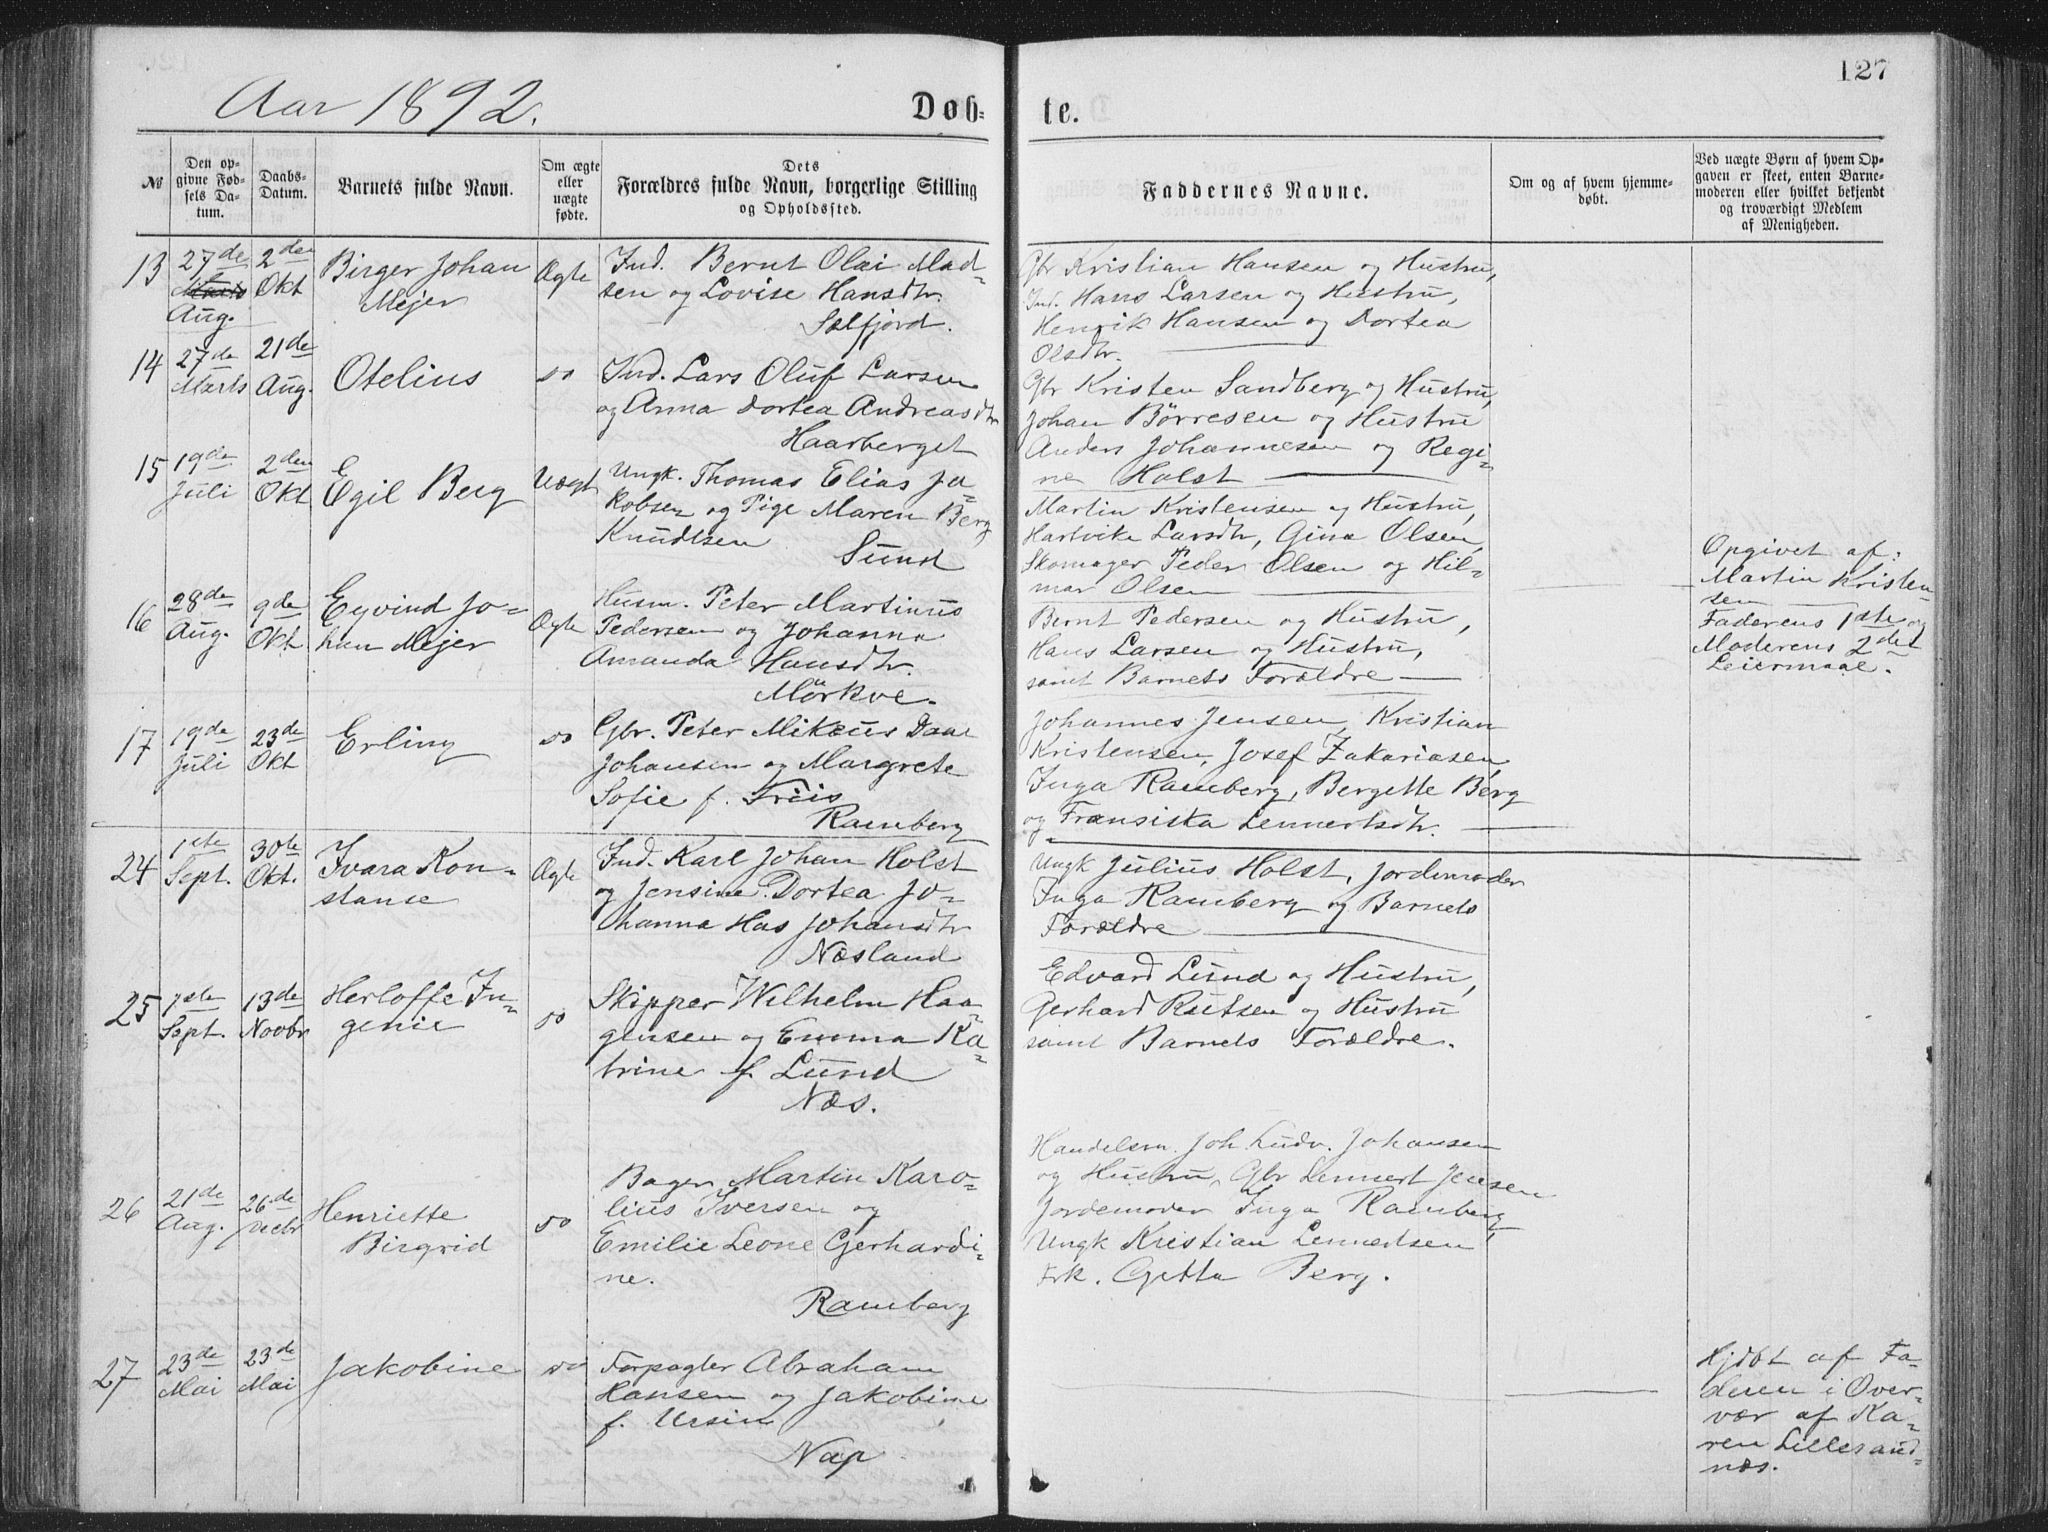 127
Aar 1892.
Døb-
te.
№
Den op-
givne Fød-
sels Da-
tum.
Daabs-
Datum.
Barnets fulde Navn.
Om ægte
eller
uægte
fødte.
Dets
Forældres fulde Navn, borgerlige Stilling
og Opholdssted.
Faddernes Navne.
Om og af hvem hjemme-
døbt.
Ved uægte Børn af hvem Op-
gaven er skeet, enten Barne-
moderen eller hvilket bekjendt
og troværdigt Medlem
af Menigheden.
13
27de
Marts
Aug.
2den
Okt
Birger Johan
Mejer
Ægte
Ind. Bernt Olai Mad-
sen og Lovise Hansdtr.
Selfjord.
Gbr Kristian Hansen og Hustru,
Ind. Hans Larsen og Hustru,
Henrik Hansen og Dortea
Olsdtr.
14
27de
Marts
21de
Aug.
Otelius
do
Ind. Lars Oluf Larsen
og Anna Dortea Andreasdtr
Haarberget
Gbr Kristen Sandberg og Hustru,
Johan Börresen og Hustru
Anders Johannesen og Regi-
ne Holst
15
19de
Juli
2den
Okt
Egil Berg
Uægt
Ungk. Thomas Elias Ja-
kobsen og Pige Maren Berg
Knudtsen
Sund
Martin Kristensen og Hustru,
Hartvike Larsdtr, Gina Olsen,
Skomager Peder Olsen og Hil-
mar Olsen
Opgivet af:
Martin Kristen-
sen
Faderens 1ste og
Moderens 2det
Leiermaal.
16
28de
Aug.
9de
Okt
Eyvind Jo-
han Mejer
Ægte
Husm. Peter Martinus
Pedersen og Johanna
Amanda Hansdtr.
Mörkve.
Bernt Pedersen og Hustru,
Hans Larsen og Hustru,
samt Barnets Forældre
17
19de
Juli
23de
Okt
Erling
do
Gbr. Peter Mikeus Daae
Johansen og Margrete
Sofie f. Friis
Ramberg
Johannes Jensen, Kristian
Kristensen, Josef Zakariasen,
Inga Ramberg, Bergette Berg
og Fransiska Lennertsdtr.
24
1ste
Sept.
30te
Okt.
Ivara Kon-
stanse
Ægte
Ind. Karl Johan Holst
og Jensine Dortea Jo-
hanna Has Johansdtr
Næsland
Ungk Julius Holst, Jordemoder
Inga Ramberg og Barnets
Forældre
25
1ste
Sept.
13de
Novbr
Herloffe In-
genie
do
Skipper Wilhelm Haa-
gensen og Emma Ka-
trine f. Lund
Næs.
Edvard Lund og Hustru,
Gerhard Rutsen og Hustru
samt Barnets Forældre.
26
21de
Aug.
26de
Henriette
Birgrid
do
Bager Martin Karo-
lius Iversen og
Emilie Leone Gerhardi-
ne.
Ramberg
Handelsm. Joh. Ludv. Johansen
og Hustru, Gbr Lennert Jensen
Jordemoder Inga Ramberg,
Ungk Kristian Lennertsen
Frk. Getta Berg.
27
23de
Mai
23de
Mai
Jakobine
do
Forpagter Abraham
Hansen og Jakobine
f. Ursin
Nap
Hjdbt af Fa-
deren i Over-
vær af Ka-
ren Lillesand-
næs.